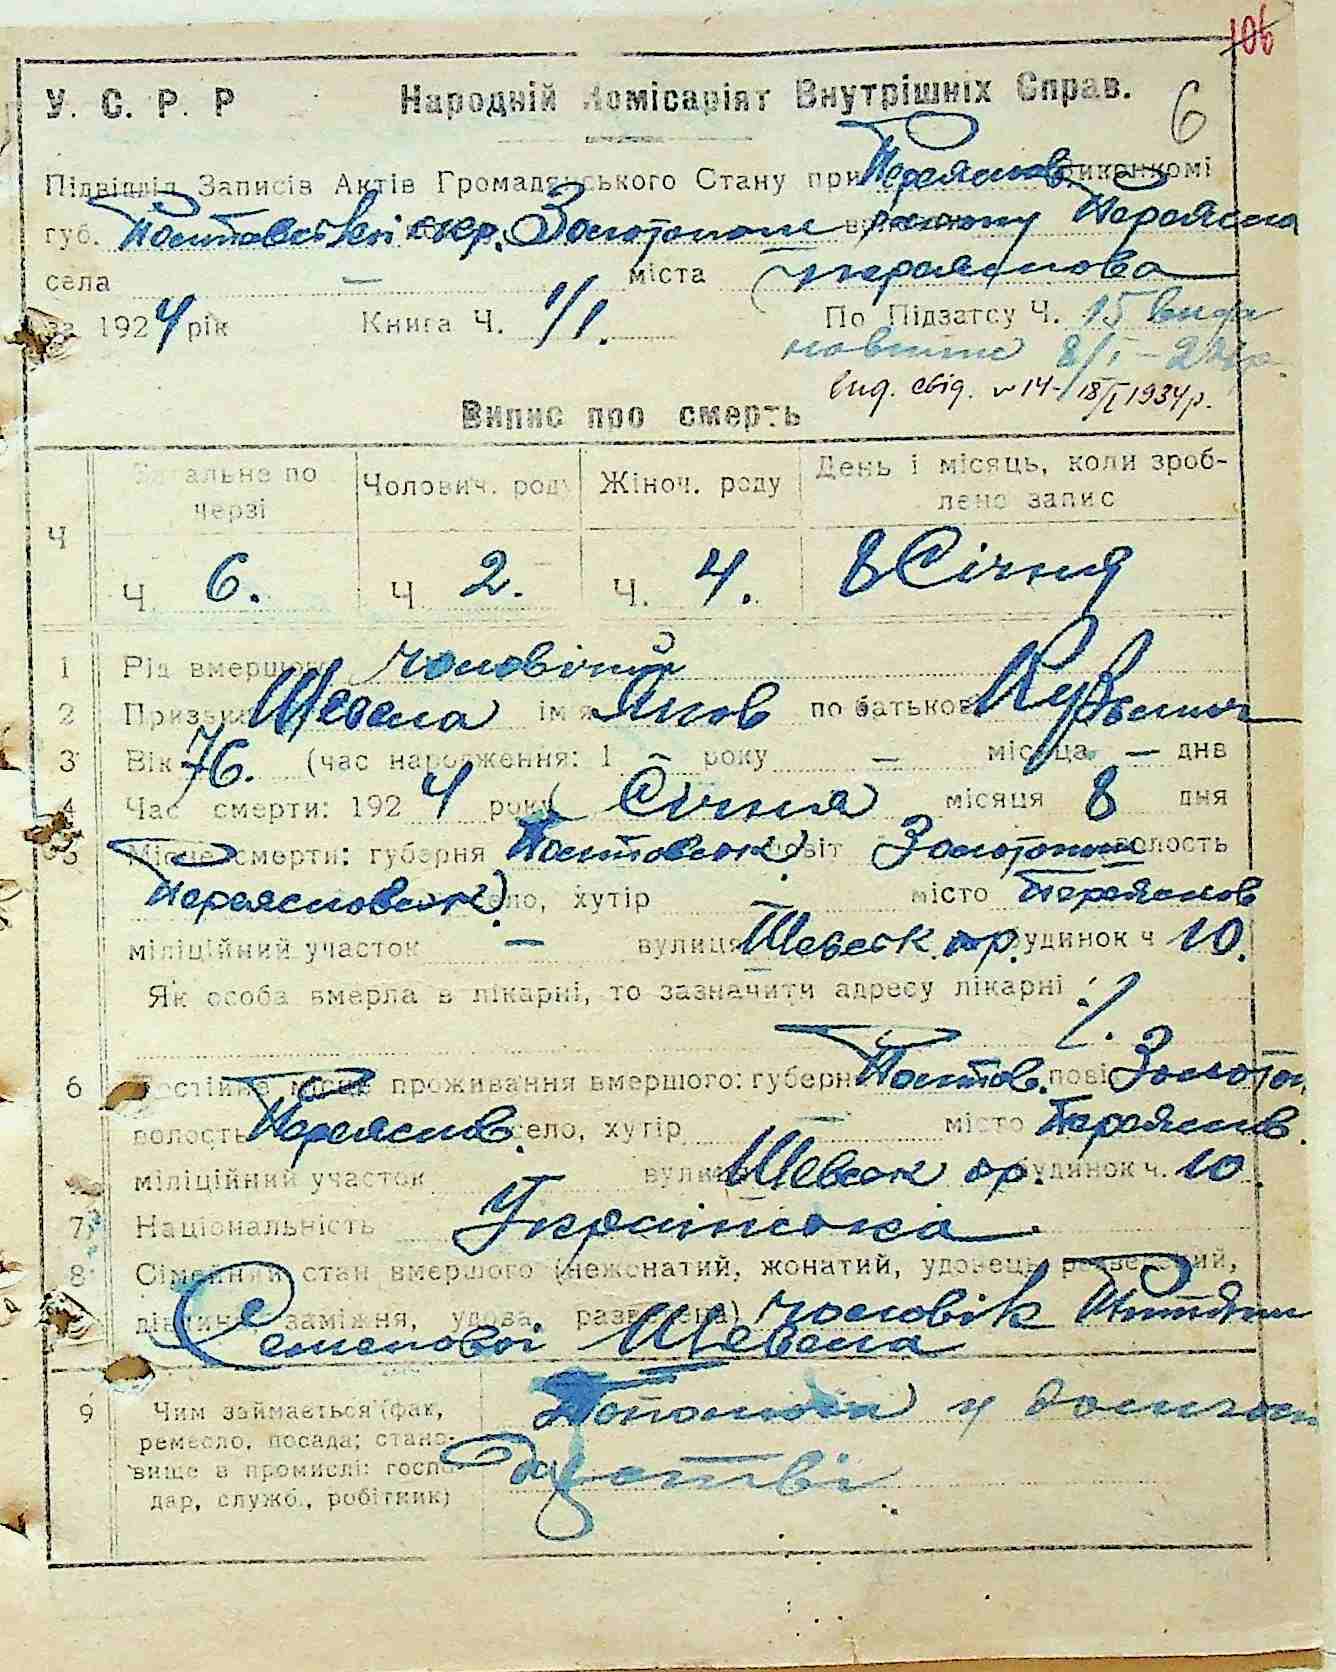 106
У. С. Р. Р Народній Комісаріят Внутрішніх Справ.
6
Підвідділ Записів Актів Громадянського Стану при Переяслов. виконкомі
губ. окр. Золотонош району Переясла
села — міста Переяслова
за 1924 рік Книга Ч. 1/1. По Підзагсу Ч. 15
8/I – 24 р.
вид. свід. № 14 – 18/I 1934 р.
Випис про смерть
Ч Загальне по черзі Чоловіч. роду Жіноч. роду День і місяць, коли зроб-
лено запис
Ч 6. Ч 2. Ч. 4. 8 Січня
1 Рід вмершого чоловічий
2 Призвище Шевела ім'я Яков по батькові
3 Вік 76. (час народження: 1 — року — місяця — дня
4 Час смерти: 1924 року Січня місяця 8 дня
5 Місце смерти: губерня Полтовськ повіт Золотонош волость
Переясловськ село, хутір — місто Переяслов
міліційний участок — вулиця будинок ч 10.
Як особа вмерла в лікарні, то зазначити адресу лікарні ./.
6 Постійне місце проживання вмершого: губерн Полтов. пові Золотон
волость Переяслов. село, хутір — місто Переяслов.
міліційний участок вулиц будинок ч. 10
7 Національність Українська
8 Сімейний стан вмершого (нежонатий, жонатий, удовець, розведений,
дівчина, заміжня, удова, разведена) чоловік
Семенової Шевела
9 Чим займається (фак, у домашн
ремесло, посада; стано-
вище в промислі: госпо-
дар, служб., робітник)